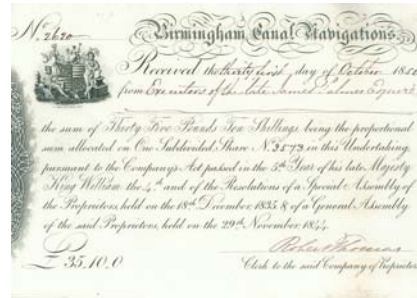 No. 2620
Birmingham Canal Navigations.
Received the thirty first day of October 18
from Executors of the late James Palmer Esquire
the sum of Thirty Five Pounds Ten Shillings being the proportional
sum allocated on One Subdivided Share No. 3573 in this Undertaking,
pursuant to the Company's Act passed in the 5th Year of his late Majesty
King William the 4th and of the Resolutions of a Special Assembly of
the Proprietors held on the 18th December 1835 & of a General Assembly
of the said Proprietors, held on the 29th November 1844.
£ 35.10.0
Robert Thomas
Clerk to the said Company of Proprietors